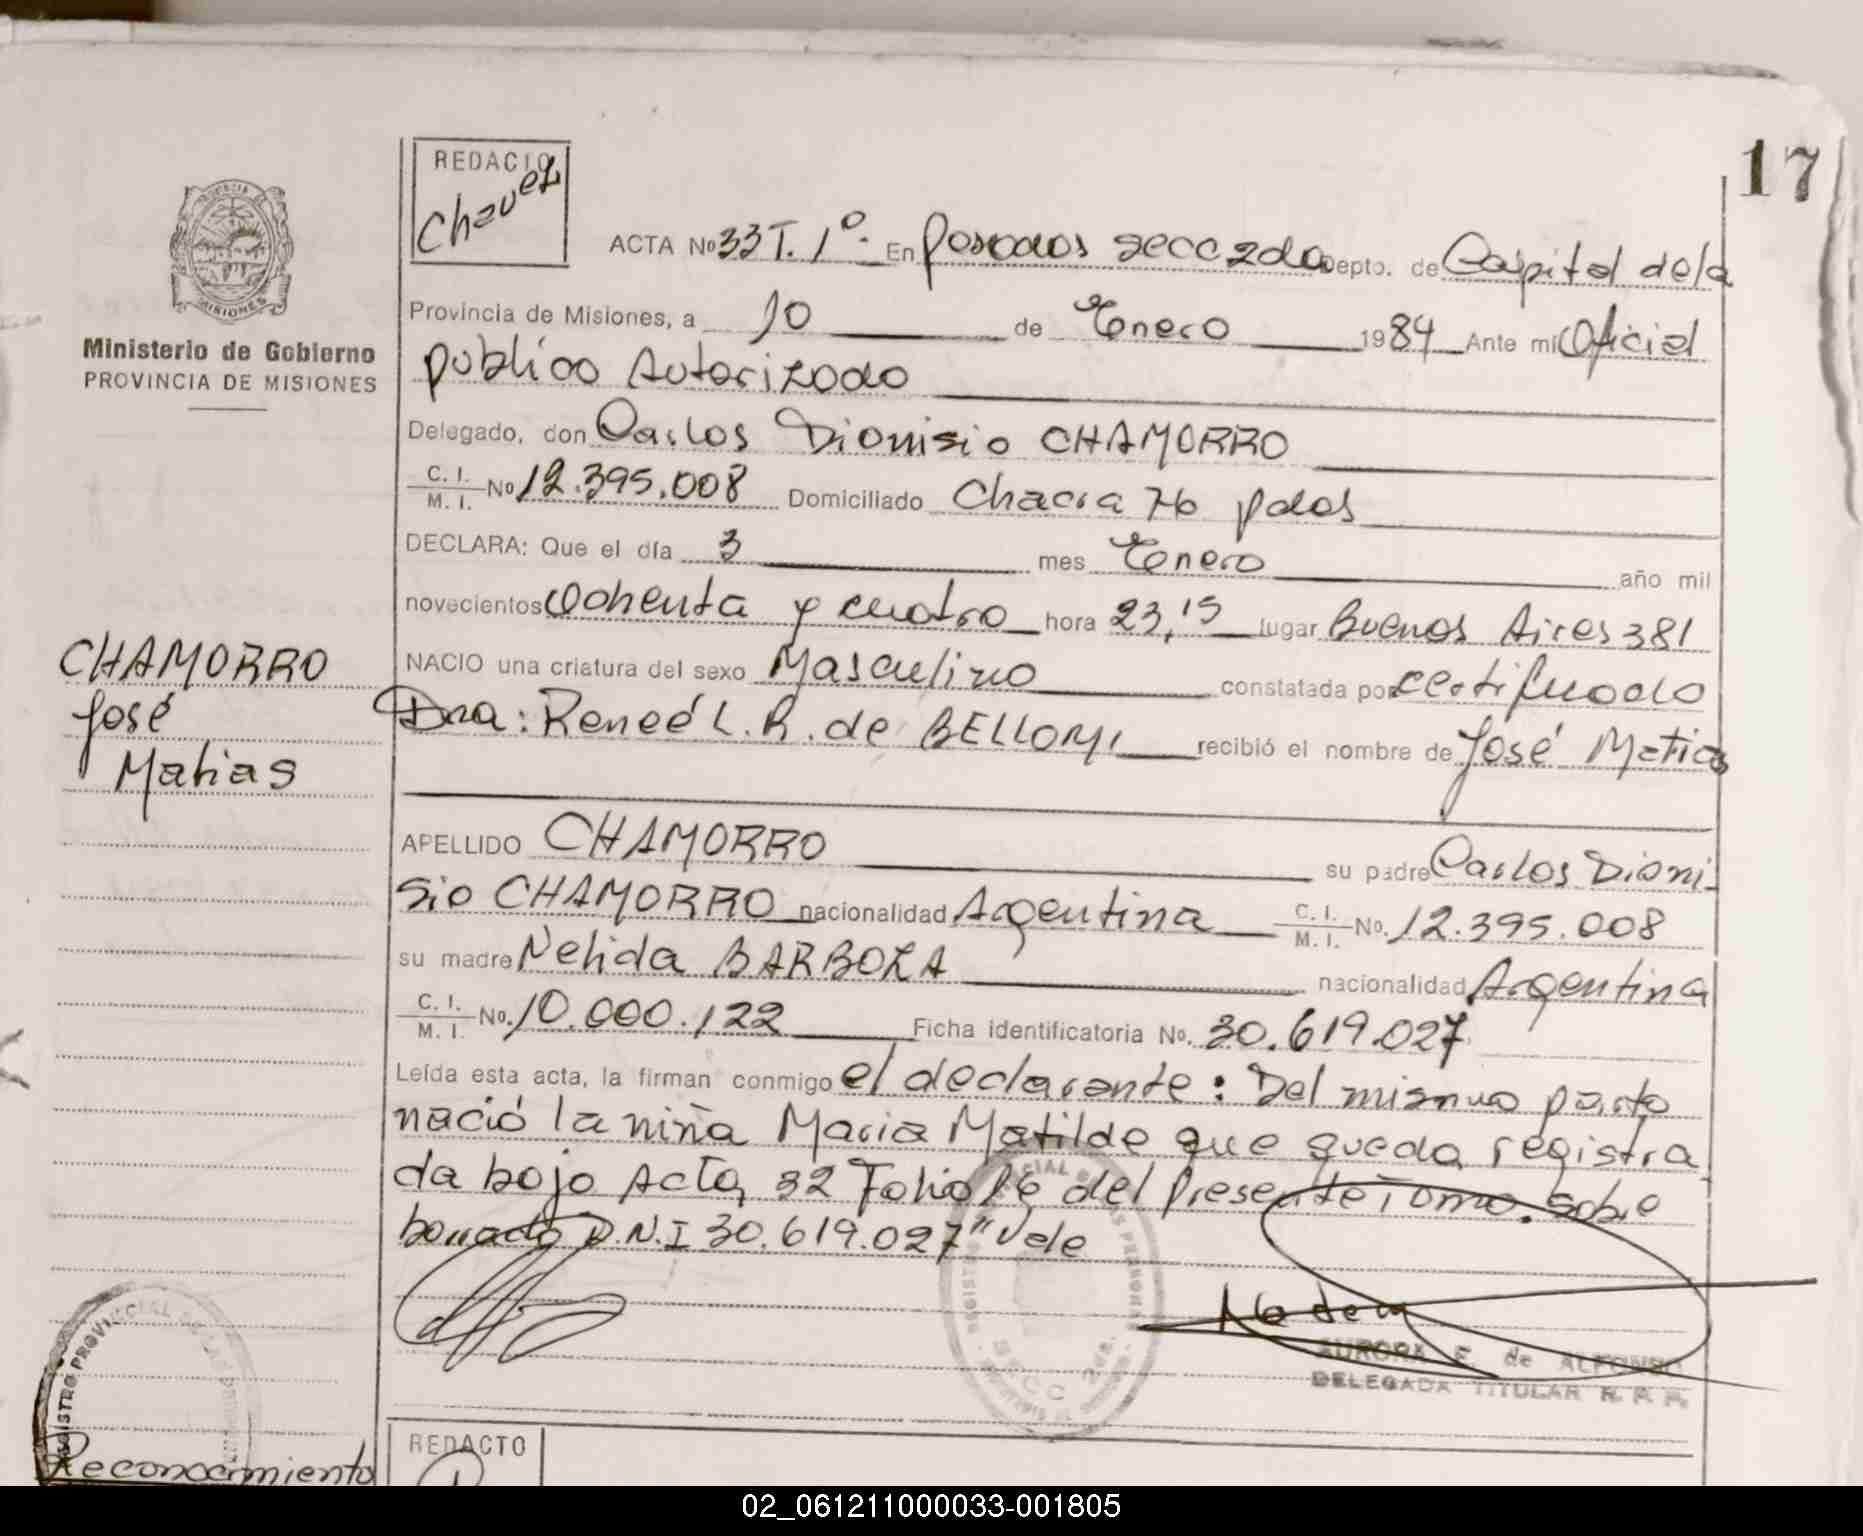 17
REDACTO
Chavez
ACTA Nº 33 T. 1º. En Posadas secc 2da Depto. de Capital de la
Provincia de Misiones, a 10 de Enero 1984 Ante mi Oficial
Ministerio de Gobierno
PROVINCIA DE MISIONES
publico Autorizado
Delegado, don Carlos Dionisio CHAMORRO
C. I. M. I. Nº 12.395.008 Domiciliado Chacra 76 pdas
DECLARA: Que el día 3 mes Enero año mil
novecientos ochenta y cuatro hora 23,15 lugar Buenos Aires 381
NACIO una criatura del sexo Masculino constatada por certificado
Dra: Reneé L. R. de BELLOMI recibió el nombre de José Matias
CHAMORRO
José
Matias
APELLIDO CHAMORRO su padre Carlos Dioni-
sio CHAMORRO nacionalidad Argentina C. I. M. I. No. 12.395.008
su madre Nelida BARBOZA nacionalidad Argentina
C. I. M. I. No. 10.000.122 Ficha identificatoria No. 30.619.027
Leída esta acta, la firman conmigo el declarante: Del mismo parto
nació la niña Maria Matilde que queda registra
da bajo Acta 32 Folio 16 del presente Tomo. Sobre
borrado D.N.I 30.619.027" Vale
AURORA E. de ALFONSO
DELEGADA TITULAR R. P. P.
REGISTRO PROVINCIAL DE LAS PERSONAS
SECC 2da.
REGISTRO PROVINCIAL DE LAS PERSONAS
Reconocimiento
REDACTO
02_061211000033-001805